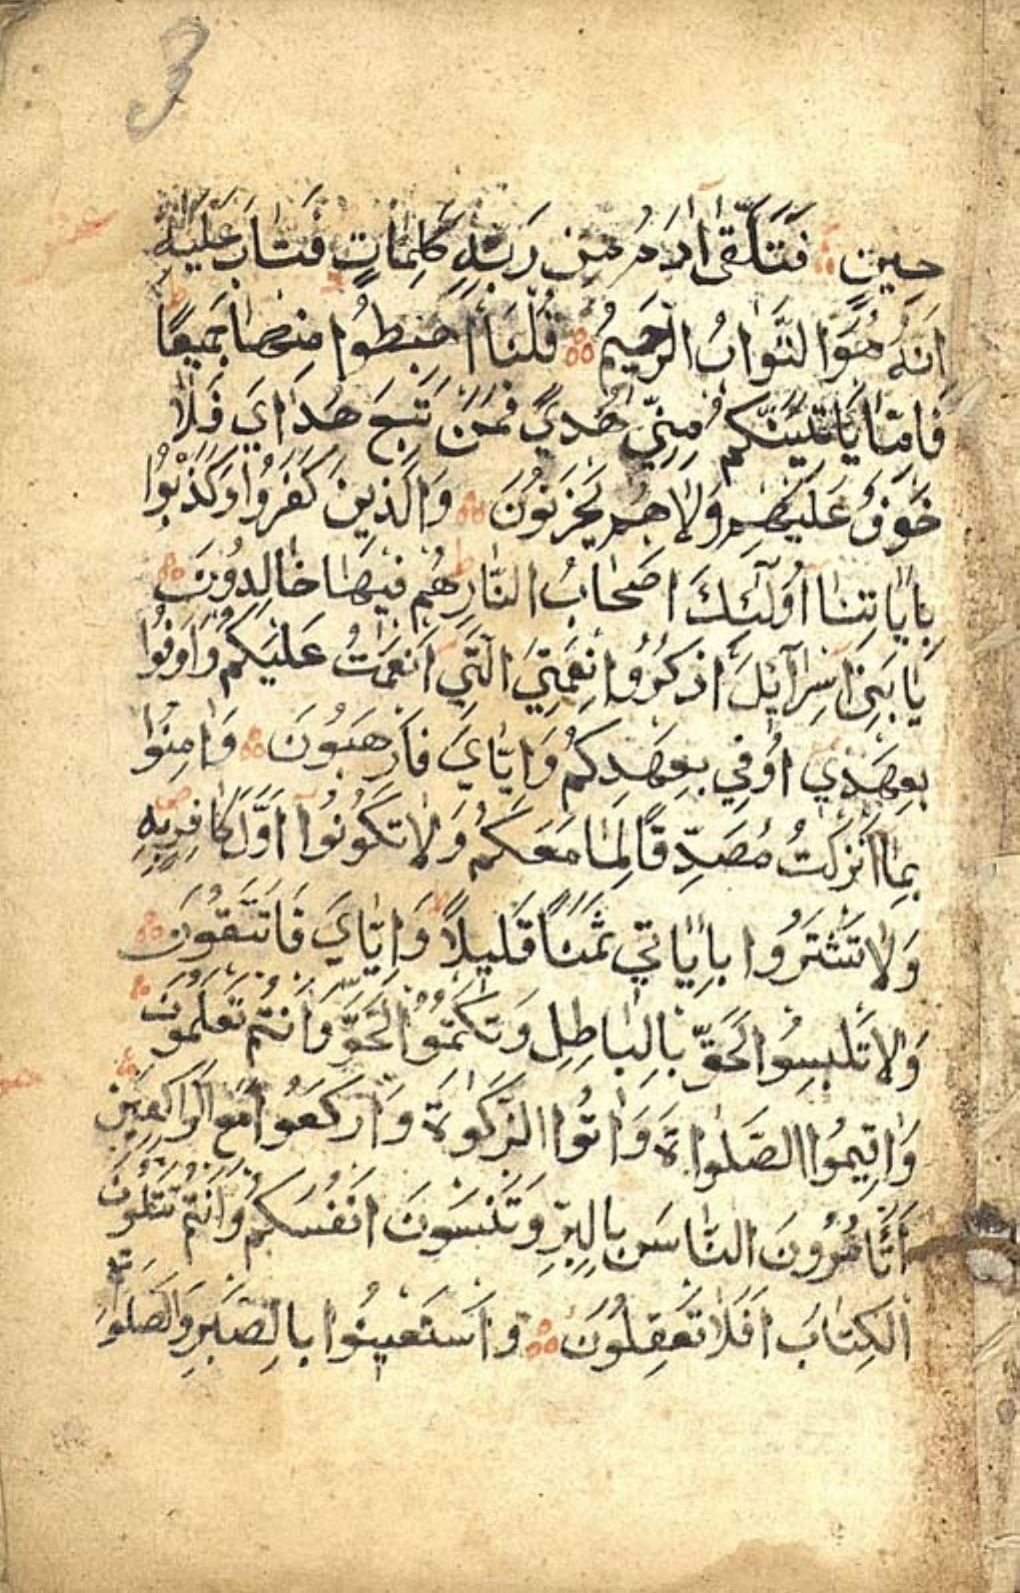 3
حِينٍ فَتَلَقَّىٰ آدَمُ مِن رَبِّهِ كَلِمَاتٍ فَتَابَ عَلَيْهِ
اِنَّهُ هُوَ التَّوَّابُ الرَّحِيمُ قُلْنَا اهْبِطُوا مِنْهَا جَمِيعًا
فَاِمَّا يَاتِيَنَّكُمْ مِنِّي هُدًي فَمَنْ تَبِعَ هُدَايَ فَلَا
خَوْفٌ عَلَيْهِمْ وَلَا هُمْ يَحْزَنُونَ وَالَّذِينَ كَفَرُوا وَكَذَّبُوا
بِاٰيَاتِنَا اُولٰٓئِكَ اَصْحَابُ النَّارِ هُمْ فِيهَا خَالِدُونَ
يَا بَنِي اِسْرَآئِلَ اذْكُرُوا نِعْمَتِيَ الَّتِي اَنْعَمْتُ عَلَيْكُمْ وَاَوْفُوا
بِعَهْدِي اُوفِي بِعَهْدِكُمْ وَاِيَّايَ فَارْهَبُونَ وَاٰمِنُوا
بِمَا اَنْزَلْتُ مُصَدِّقًا لِمَا مَعَكُمْ وَلَا تَكُونُوا اَوَّلَ كَافِرٍ بِهِ
وَلَا تَشْتَرُوا بِاٰيَاتِي ثَمَنًا قَلِيلًا وَاِيَّايَ فَاتَّقُونَ
وَلَا تَلْبِسُوا الْحَقَّ بِالْبَاطِلِ وَتَكْتُمُوا الْحَقَّ وَاَنْتُمْ تَعْلَمُونَ
وَاَقِيمُوا الصَّلٰواةَ وَاٰتُوا الزَّكٰوةَ وَارْكَعُوا مَعَ الرَّاكِعِينَ
اَتَامُرُونَ النَّاسَ بِالْبِرِّ وَتَنْسَوْنَ اَنْفُسَكُمْ وَاَنْتُمْ تَتْلُونَ
الْكِتَابَ اَفَلَا تَعْقِلُونَ وَاسْتَعِينُوا بِالصَّبْرِ وَالصَّلٰوةِ